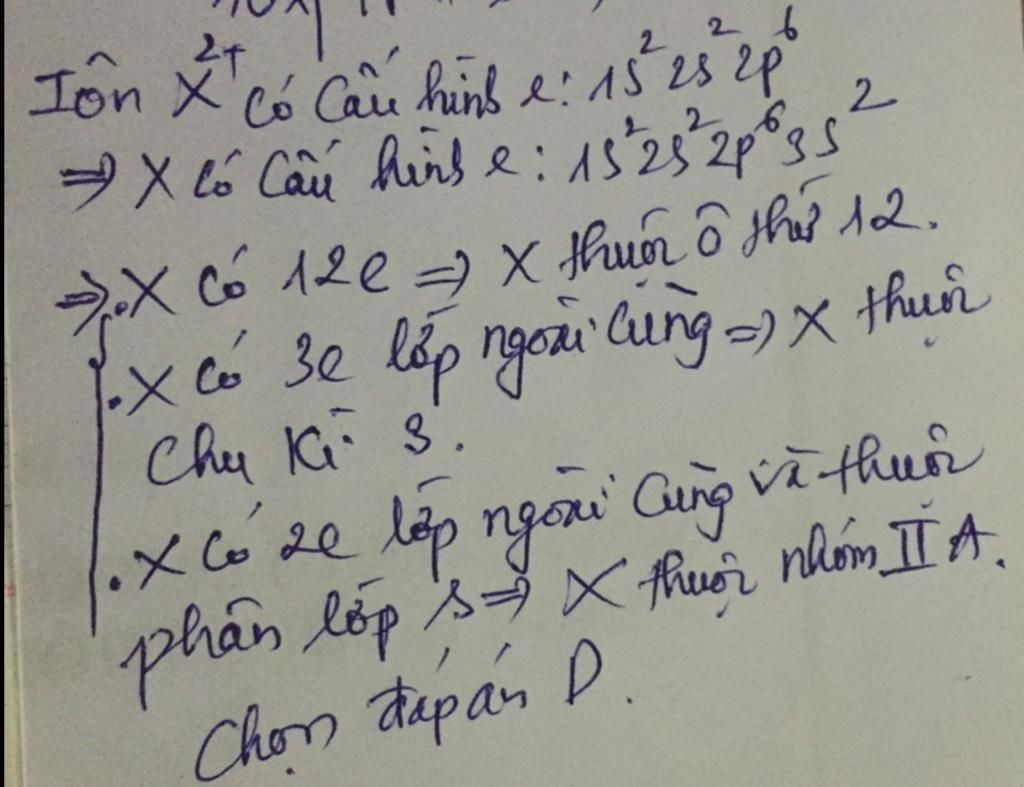 Iôn X²⁺ có cấu hình e: 1s²2s²2p⁶
⇒ X có cấu hình e: 1s²2s²2p⁶3s²
⇒ . X có 12e ⇒ X thuộc ô thứ 12.
. X có 3e lớp ngoài cùng ⇒ X thuộc
chu kì 3.
. X có 2e lớp ngoài cùng và thuộc
phân lớp s ⇒ X thuộc nhóm IIA.
Chọn đáp án D.